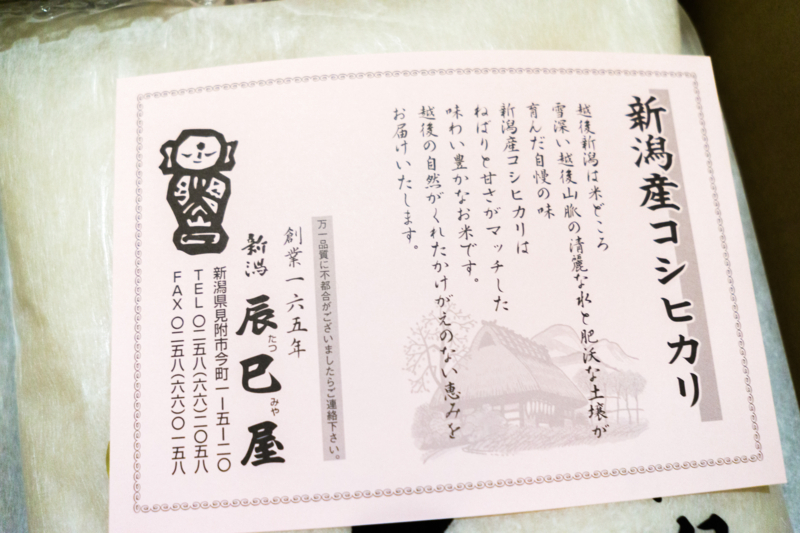 新潟産コシヒカリ
越後新潟は米どころ
雪深い越後山脈の清麗な水と肥沃な土壌が
育んだ自慢の味
新潟産コシヒカリは
ねばりと甘さがマッチした
味わい豊かなお米です。
越後の自然がくれたかけがえのない恵みを
お届けいたします。
万一品質に不都合がございましたらご連絡下さい。
創業一六五年
新潟 辰巳屋
たつ みや
新潟県見附市今町一ー五ー二〇
TEL〇二五八(六六)二〇五八
FAX〇二五八(六六)〇一五八